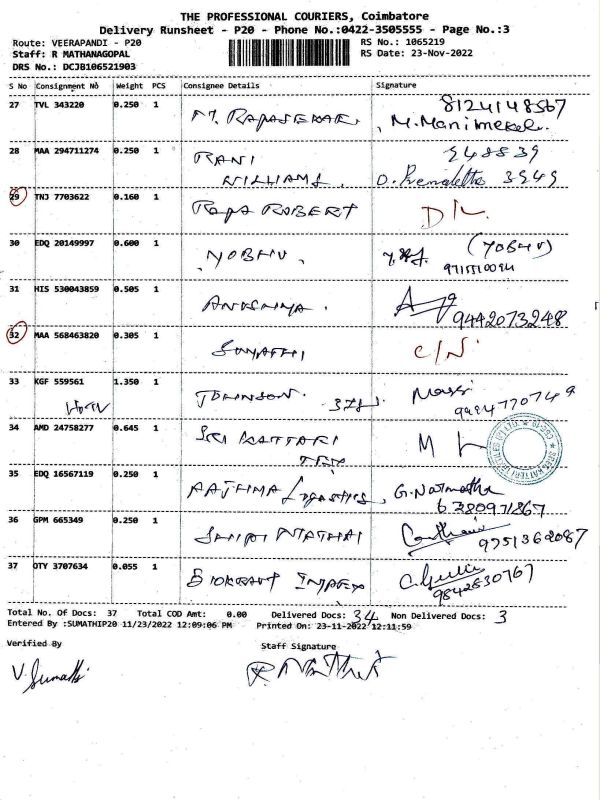 THE PROFESSIONAL COURIERS, Coimbatore
Delivery Runsheet - P20 - Phone No.:0422-3505555 - Page No.:3
Route: VEERAPANDI - P20 RS No.: 1065219
Staff: R MATHANAGOPAL RS Date: 23-Nov-2022
DRS No.: DCJB106521903
S No Consignment No Weight PCS Consignee Details Signature
27 TVL 343220 0.250 1 M. RAJASEKAR. 8124148567
M. Manimekal.
28 MAA 294711274 0.250 1 RANI 948839
WILLIAMS. 3949
29 TNJ 7703622 0.160 1 RAJA ROBERT D/L
30 EDQ 20149997 0.600 1 YOBHU. (YOBHU)
31 HIS 530043859 0.505 1 9442073248
32 MAA 568463820 0.305 1 SUMATHI C/N
33 KGF 559561 1.350 1 JOHNSON.
34 AMD 24758277 0.645 1 SRI KATTARI
TEX
35 EDQ 16567119 0.250 1 LOGISTICS, G.
6380971867
36 GPM 665349 0.250 1 9751362087
37 OTY 3707634 0.055 1 IMPEX
9842830767
Total No. Of Docs: 37 Total COD Amt: 0.00 Delivered Docs: 34 Non Delivered Docs: 3
Entered By :SUMATHIP20 11/23/2022 12:09:06 PM Printed On: 23-11-2022 12:11:59
Verified By Staff Signature
V. Sumathi